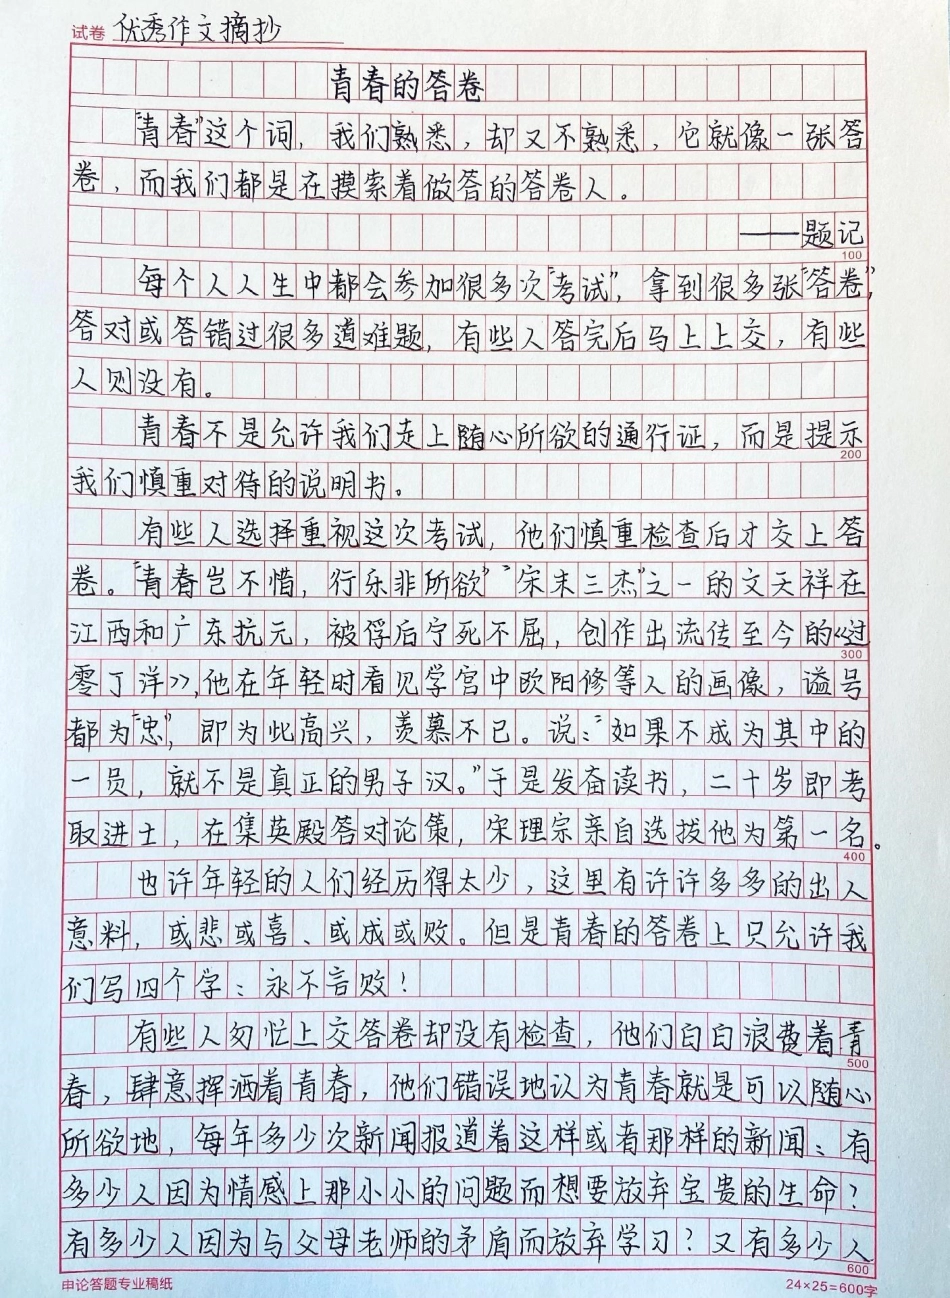 试卷 优秀作文摘抄
青春的答卷
“青春”这个词，我们熟悉，却又不熟悉，它就像一张答
卷，而我们都是在摸索着做答的答卷人。
——题记
100
每个人人生中都会参加很多次“考试”，拿到很多张“答卷”，
答对或答错过很多道难题，有些人答完后马上上交，有些
人则没有。
青春不是允许我们走上随心所欲的通行证，而是提示
200
我们慎重对待的说明书。
有些人选择重视这次考试，他们慎重检查后才交上答
卷。“青春岂不惜，行乐非所欲”“宋末三杰”之一的文天祥在
江西和广东抗元，被俘后宁死不屈，创作出流传至今的《过
300
零丁洋》，他在年轻时看见学宫中欧阳修等人的画像，谥号
都为“忠”，即为此高兴，羡慕不已。说：“如果不成为其中的
一员，就不是真正的男子汉。”于是发奋读书，二十岁即考
取进士，在集英殿答对论策，宋理宗亲自选拔他为第一名。
400
也许年轻的人们经历得太少，这里有许许多多的出人
意料，或悲或喜、或成或败。但是青春的答卷上只允许我
们写四个字：永不言败！
有些人匆忙上交答卷却没有检查，他们白白浪费着青
500
春，肆意挥洒着青春，他们错误地认为青春就是可以随心
所欲地，每年多少次新闻报道着这样或者那样的新闻：有
多少人因为情感上那小小的问题而想要放弃宝贵的生命？
有多少人因为与父母老师的矛盾而放弃学习？又有多少人
600
申论答题专业稿纸
24×25=600字